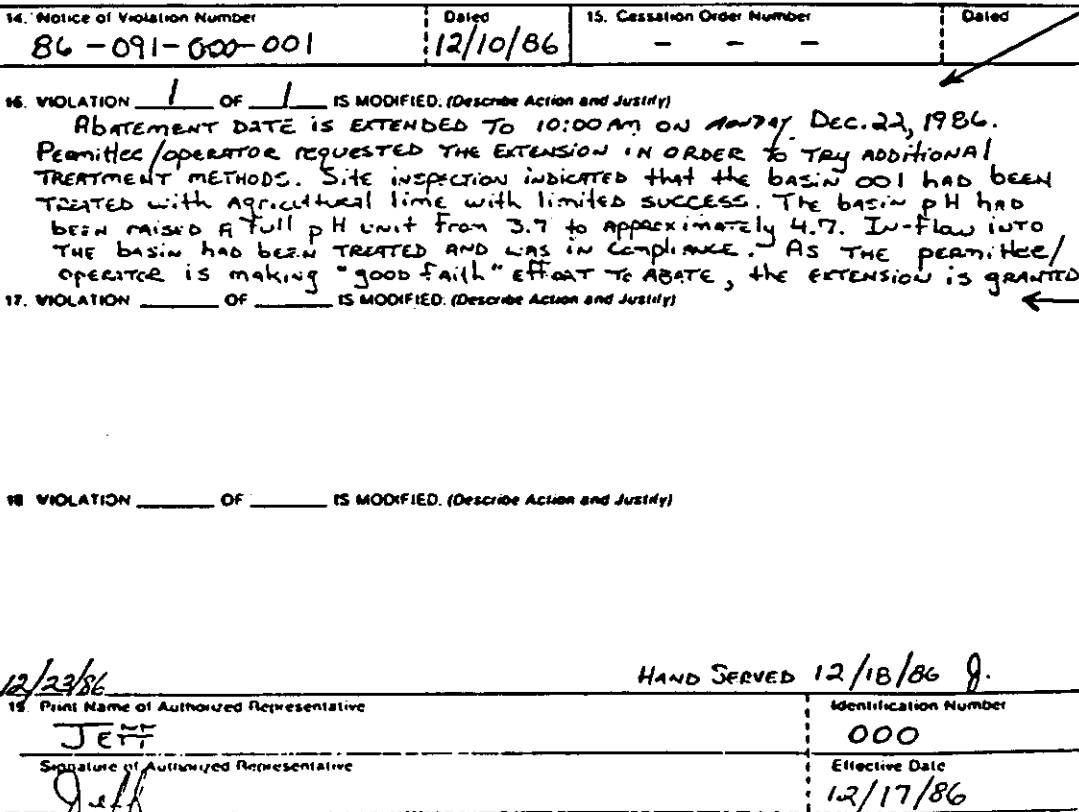 14. Notice of Violation Number Dated 15. Cessation Order Number Dated
86-091-000-001 12/10/86 - - -
16. VIOLATION 1 OF 1 IS MODIFIED. (Describe Action and Justify)
Abatement Date is extended to 10:00 AM on Monday Dec. 22, 1986.
Permittee/operator requested the extension in order to try additional
treatment methods. Site inspection indicated that the basin 001 had been
treated with agricultural lime with limited success. The basin pH had
been raised a full pH unit from 3.7 to approximately 4.7. In-flow into
the basin had been treated and was in compliance. As the permittee/
operator is making "good faith" effort to abate, the extension is granted
17. VIOLATION ____ OF ____ IS MODIFIED. (Describe Action and Justify)
18 VIOLATION ____ OF ____ IS MODIFIED. (Describe Action and Justify)
12/23/86 Hand Served 12/18/86 J.
19. Print Name of Authorized Representative Identification Number
Jeff 000
Signature of Authorized Representative Effective Date
Jeff 12/17/86